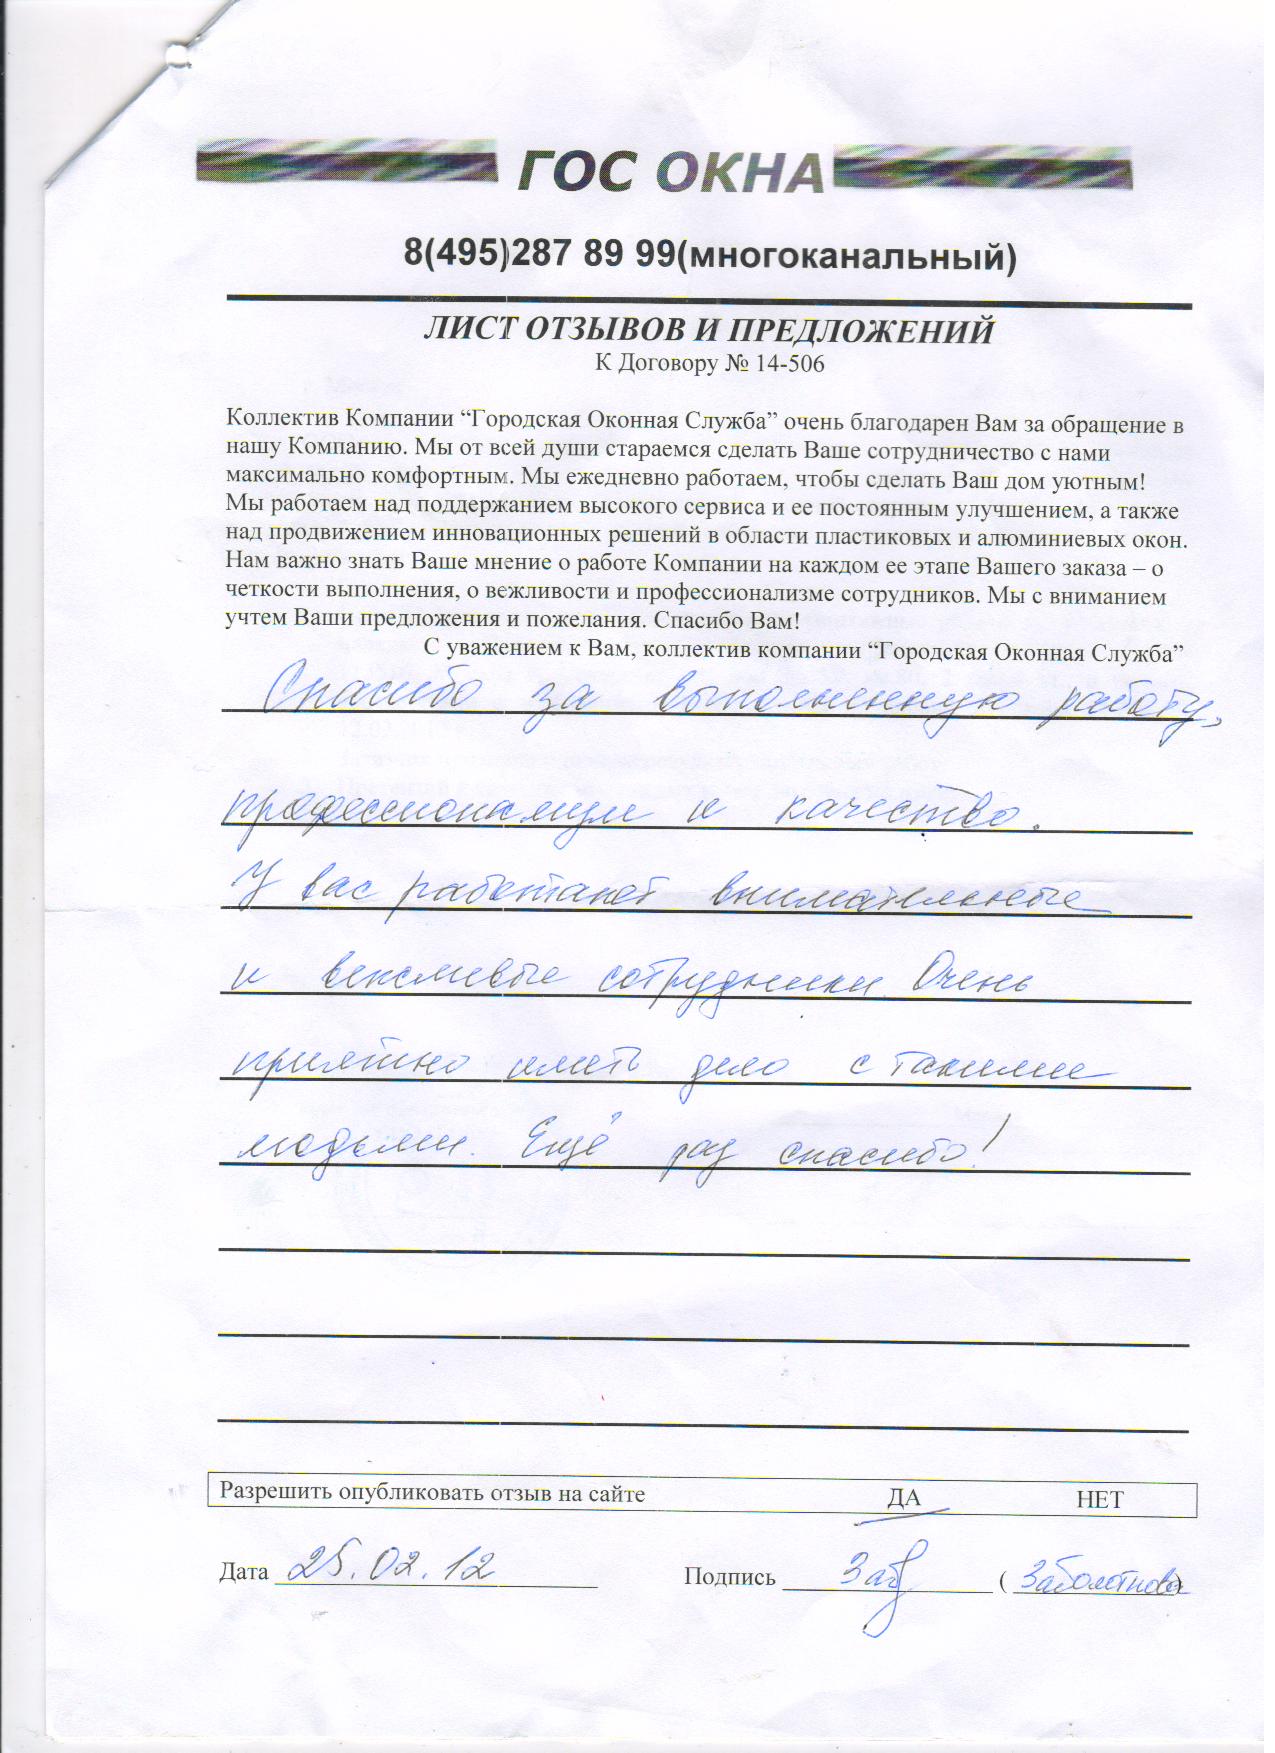 ГОС ОКНА
8(495)287 89 99(многоканальный)
ЛИСТ ОТЗЫВОВ И ПРЕДЛОЖЕНИЙ
К Договору № 14-506
Коллектив Компании “Городская Оконная Служба” очень благодарен Вам за обращение в
нашу Компанию. Мы от всей души стараемся сделать Ваше сотрудничество с нами
максимально комфортным. Мы ежедневно работаем, чтобы сделать Ваш дом уютным!
Мы работаем над поддержанием высокого сервиса и ее постоянным улучшением, а также
над продвижением инновационных решений в области пластиковых и алюминиевых окон.
Нам важно знать Ваше мнение о работе Компании на каждом ее этапе Вашего заказа – о
четкости выполнения, о вежливости и профессионализме сотрудников. Мы с вниманием
учтем Ваши предложения и пожелания. Спасибо Вам!
С уважением к Вам, коллектив компании “Городская Оконная Служба”
Спасибо за выполненную работу,
профессионализм и качество.
У вас работают внимательные
и вежливые сотрудники. Очень
приятно иметь дело с такими
людьми. Ещё раз спасибо!
Разрешить опубликовать отзыв на сайте ДА НЕТ
Дата 25.02.12 Подпись Заб (Заболотнова)